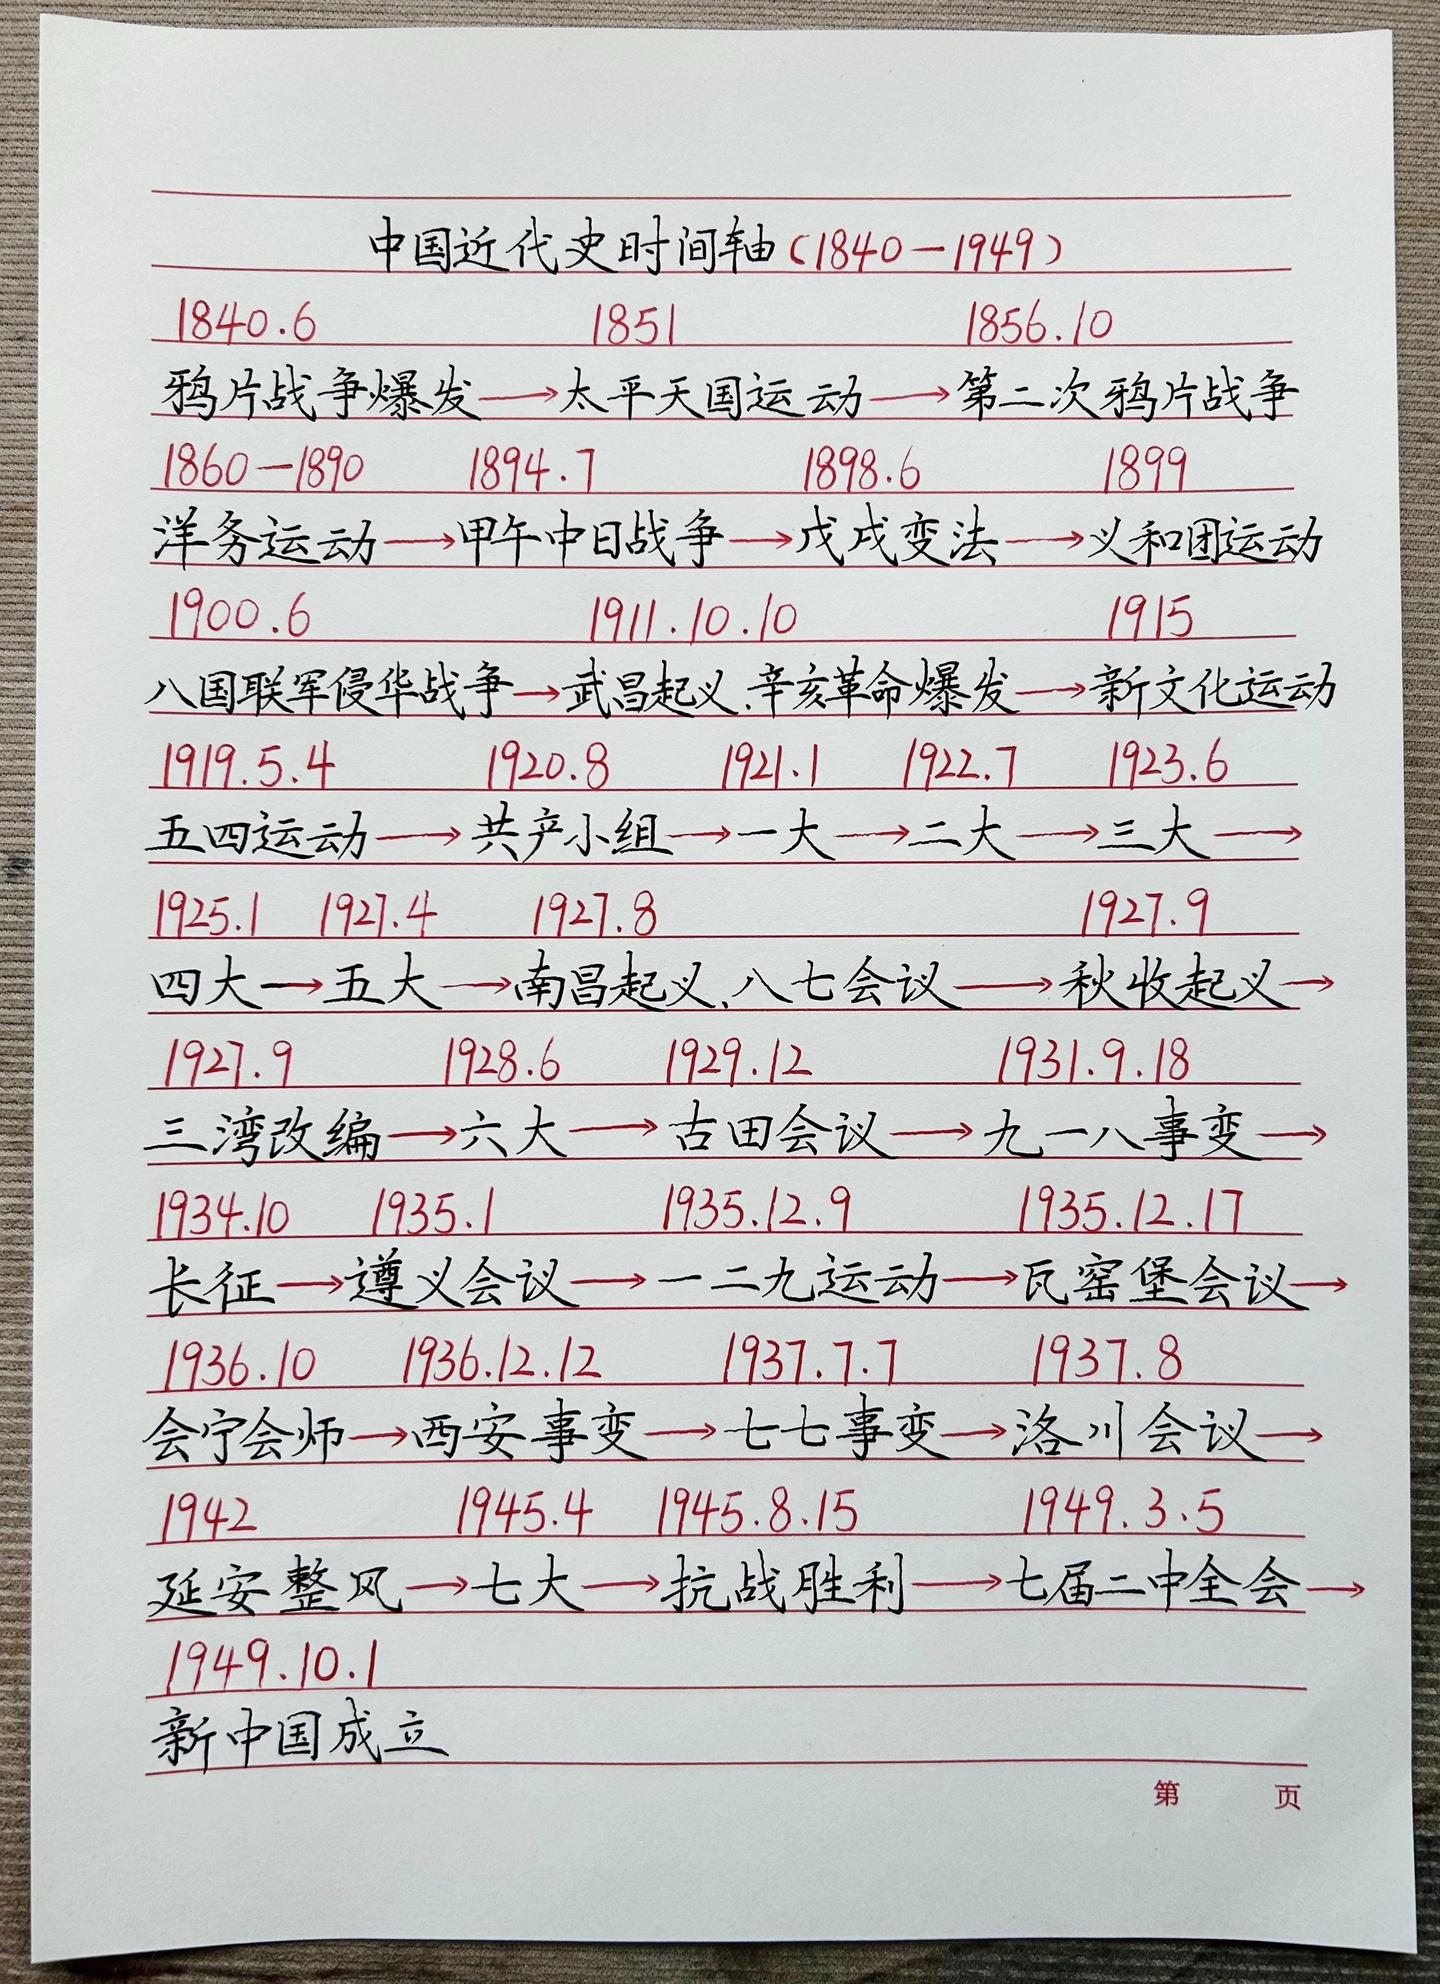 中国近代史时间轴(1840—1949)
1840.6 1851 1856.10
鸦片战争爆发→太平天国运动→第二次鸦片战争
1860—1890 1894.7 1898.6 1899
洋务运动→甲午中日战争→戊戌变法→义和团运动
1900.6 1911.10.10 1915
八国联军侵华战争→武昌起义、辛亥革命爆发→新文化运动
1919.5.4 1920.8 1921.1 1922.7 1923.6
五四运动→共产小组→一大→二大→三大→
1925.1 1927.4 1927.8 1927.9
四大→五大→南昌起义、八七会议→秋收起义→
1927.9 1928.6 1929.12 1931.9.18
三湾改编→六大→古田会议→九一八事变→
1934.10 1935.1 1935.12.9 1935.12.17
长征→遵义会议→一二九运动→瓦窑堡会议→
1936.10 1936.12.12 1937.7.7 1937.8
会宁会师→西安事变→七七事变→洛川会议→
1942 1945.4 1945.8.15 1949.3.5
延安整风→七大→抗战胜利→七届二中全会→
1949.10.1
新中国成立
第 页